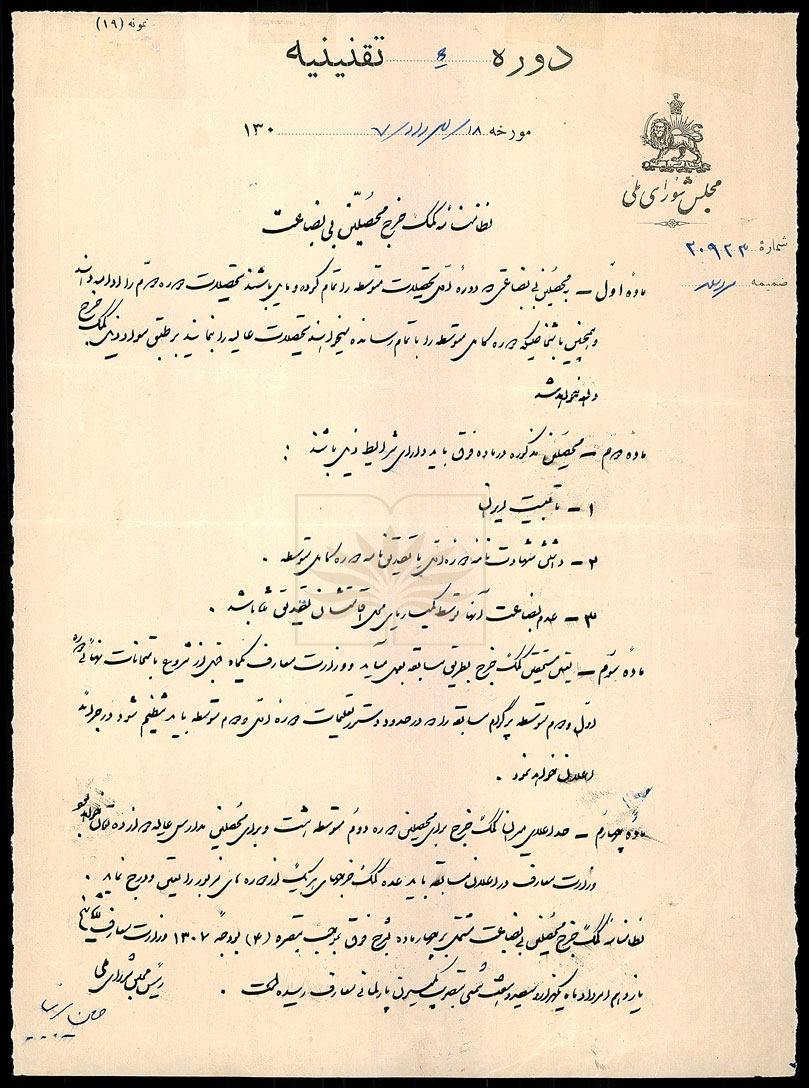 نمونه (۱۹)
دوره ۶ تقنینیه
مورخه ۱۸ ۷ ۱۳۰
مجلس شورای ملی
شمارهٔ ۲۰۹۲۴
ضمیمه
نظامنامه کمک خرج محصلین بی بضاعت
مادهٔ اول – محصلین بی بضاعتی که دورهٔ اول تحصیلات متوسطه را تمام کرده و مایل باشند تحصیلات دوره دوم را ادامه دهند
و همچنین اشخاصیکه دوره کامل متوسطه را باتمام رسانده میخواهند تحصیلات عالیه را بنمایند بر طبق مواد ذیل کمک خرج
داده خواهد شد
مادهٔ دوم – محصلین مذکوره در ماده فوق باید دارای شرایط ذیل باشند :
۱ – تابعیت ایران
۲ – داشتن شهادت نامه دوره اول یا تصدیق نامه دوره کامل متوسطه .
۳ – عدم بضاعت آنها توسط کمیساریای محل اقامتشان تصدیق شده باشد .
مادهٔ سوم – تعیین مستحقین کمک خرج بطریق مسابقه بعمل میآید و وزارت معارف یکماه قبل از شروع بامتحانات نهائی دوره
اول و دوم متوسطه پرگرام مسابقه را که در حدود دستور تعلیمات دوره اول و دوم متوسطه باید تنظیم شود در جراید
اعلان خواهد نمود .
مادهٔ چهارم – حد اعلای میزان کمک خرج برای محصلین دوره دوم متوسطه هشت و برای محصلین مدارس عالیه دوازده تومان خواهد بود
وزارت معارف در اعلان مسابقه باید عده کمک خرجهای هر یک از دوره های مزبور را تعیین و درج نماید .
نظامنامه کمک خرج محصلین بی بضاعت مشتمل بر چهار ماده بشرح فوق بموجب تبصره (۴) بودجه ۱۳۰۷ وزارت معارف بتاریخ
یازدهم امرداد ماه یکهزار و سیصد و هفت شمسی بتصویب کمیسیون پارلمانی معارف رسیده است .
رئیس مجلس شورای ملی